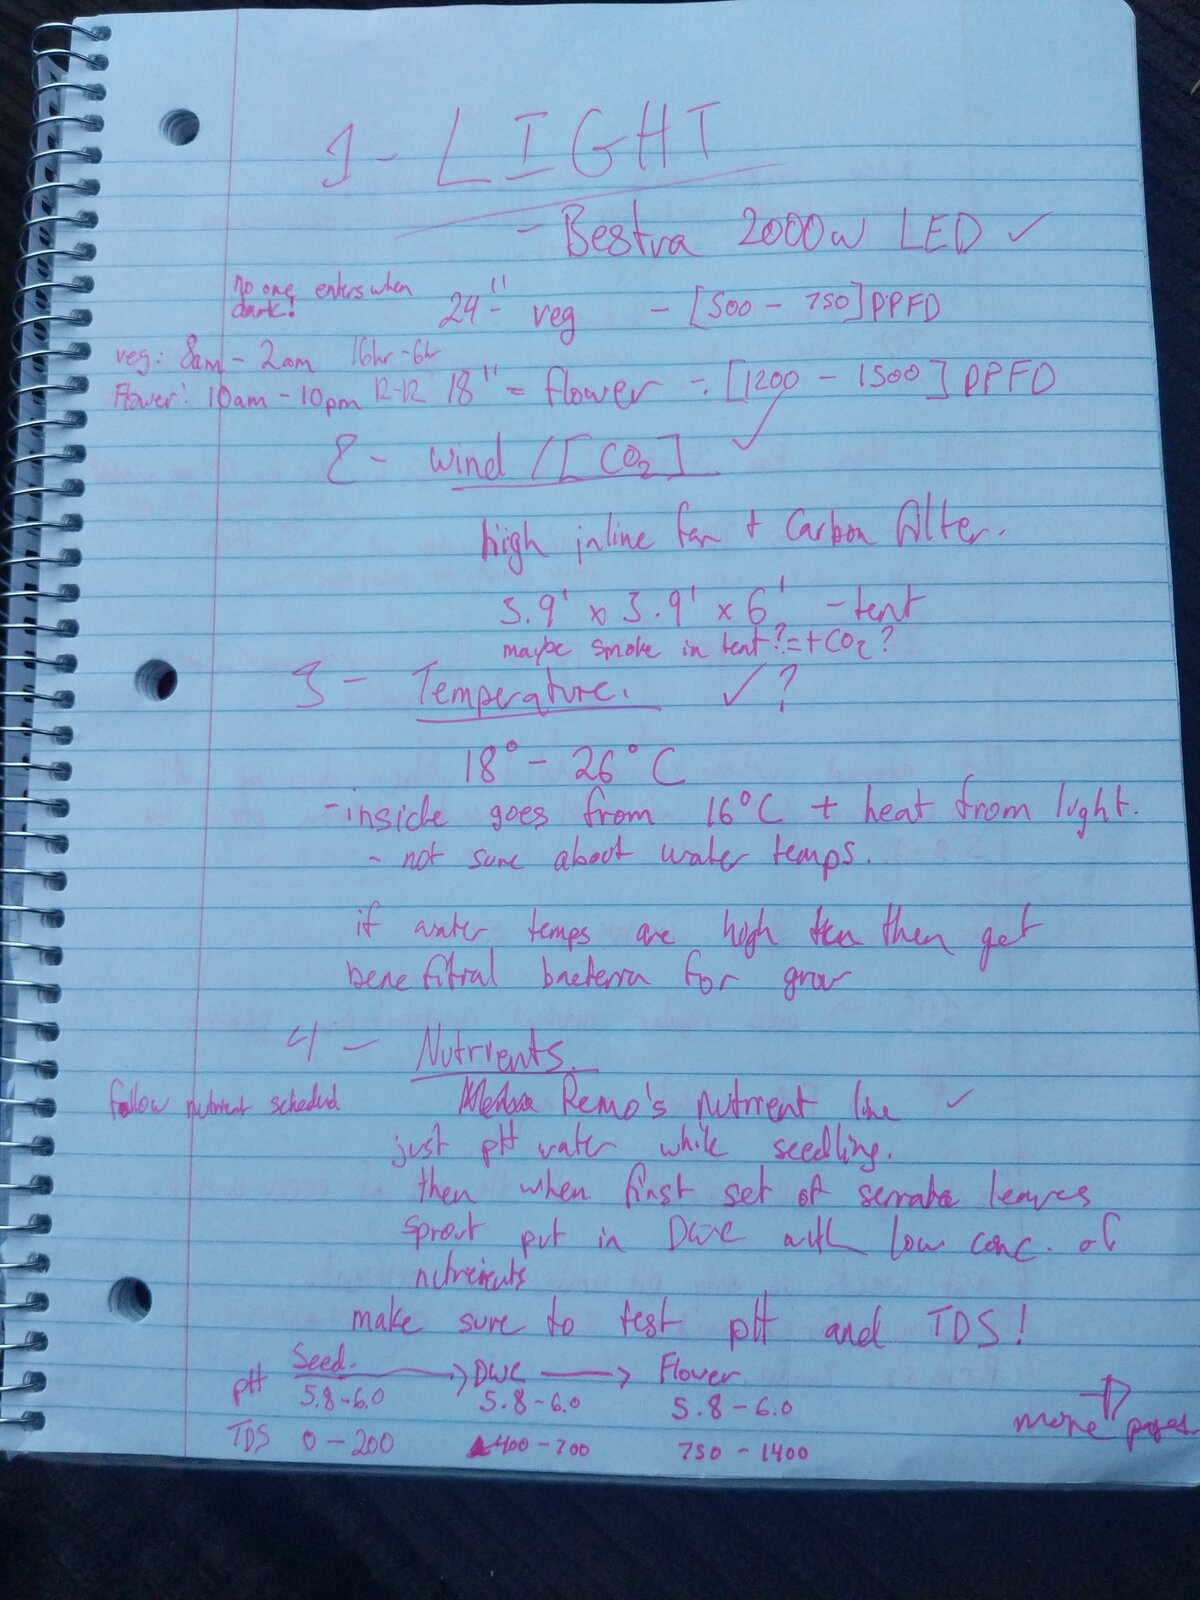 1 - LIGHT
- Bestva 2000w LED ✓
no one enters when
dark!
24" - veg - [500 - 750] PPFD
veg: 8am - 2am 16hr - 6hr
Flower: 10am - 10pm 12-12 18" = flower - [1200 - 1500] PPFD
2 - wind / [CO2] ✓
high inline fan + carbon filter.
3.9' x 3.9' x 6' - tent
maybe smoke in tent? = + CO2?
3 - Temperature. ✓ ?
18° - 26° C
- inside goes from 16°C + heat from light.
- not sure about water temps.
if water temps are high then get
benefitial bacteria for grow
4 - Nutrients
follow nutrient schedual Remo's nutrient line ✓
just pH water while seedling.
then when first set of serrate leaves
sprout put in DWC with low conc. of
nutreients
make sure to test pH and TDS!
Seed. → DWC → Flower
pH 5.8-6.0 5.8-6.0 5.8-6.0
TDS 0-200 400-700 750-1400
more pages